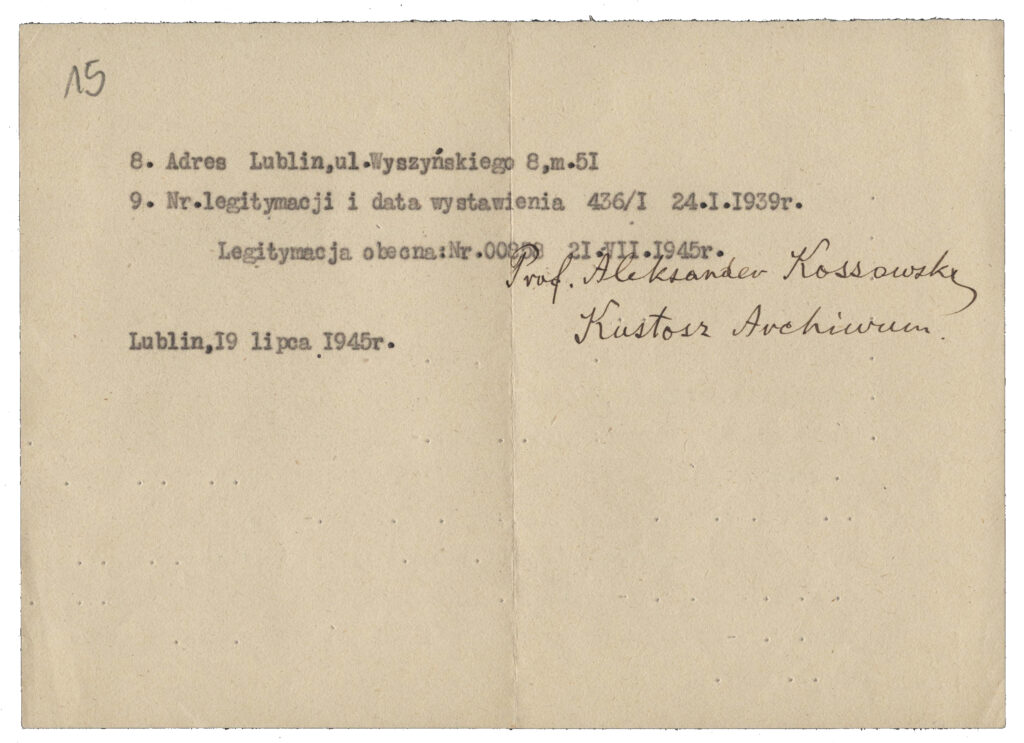 15
8. Adres Lublin,ul.Wyszyńskiego 8,m.5I
9. Nr.legitymacji i data wystawienia 436/I 24.I.I939r.
Legitymacja obecna:Nr.00858 2I.VII.I945r.
Prof. Aleksander Kossowski
Kustosz Archiwum.
Lublin,I9 lipca I945r.